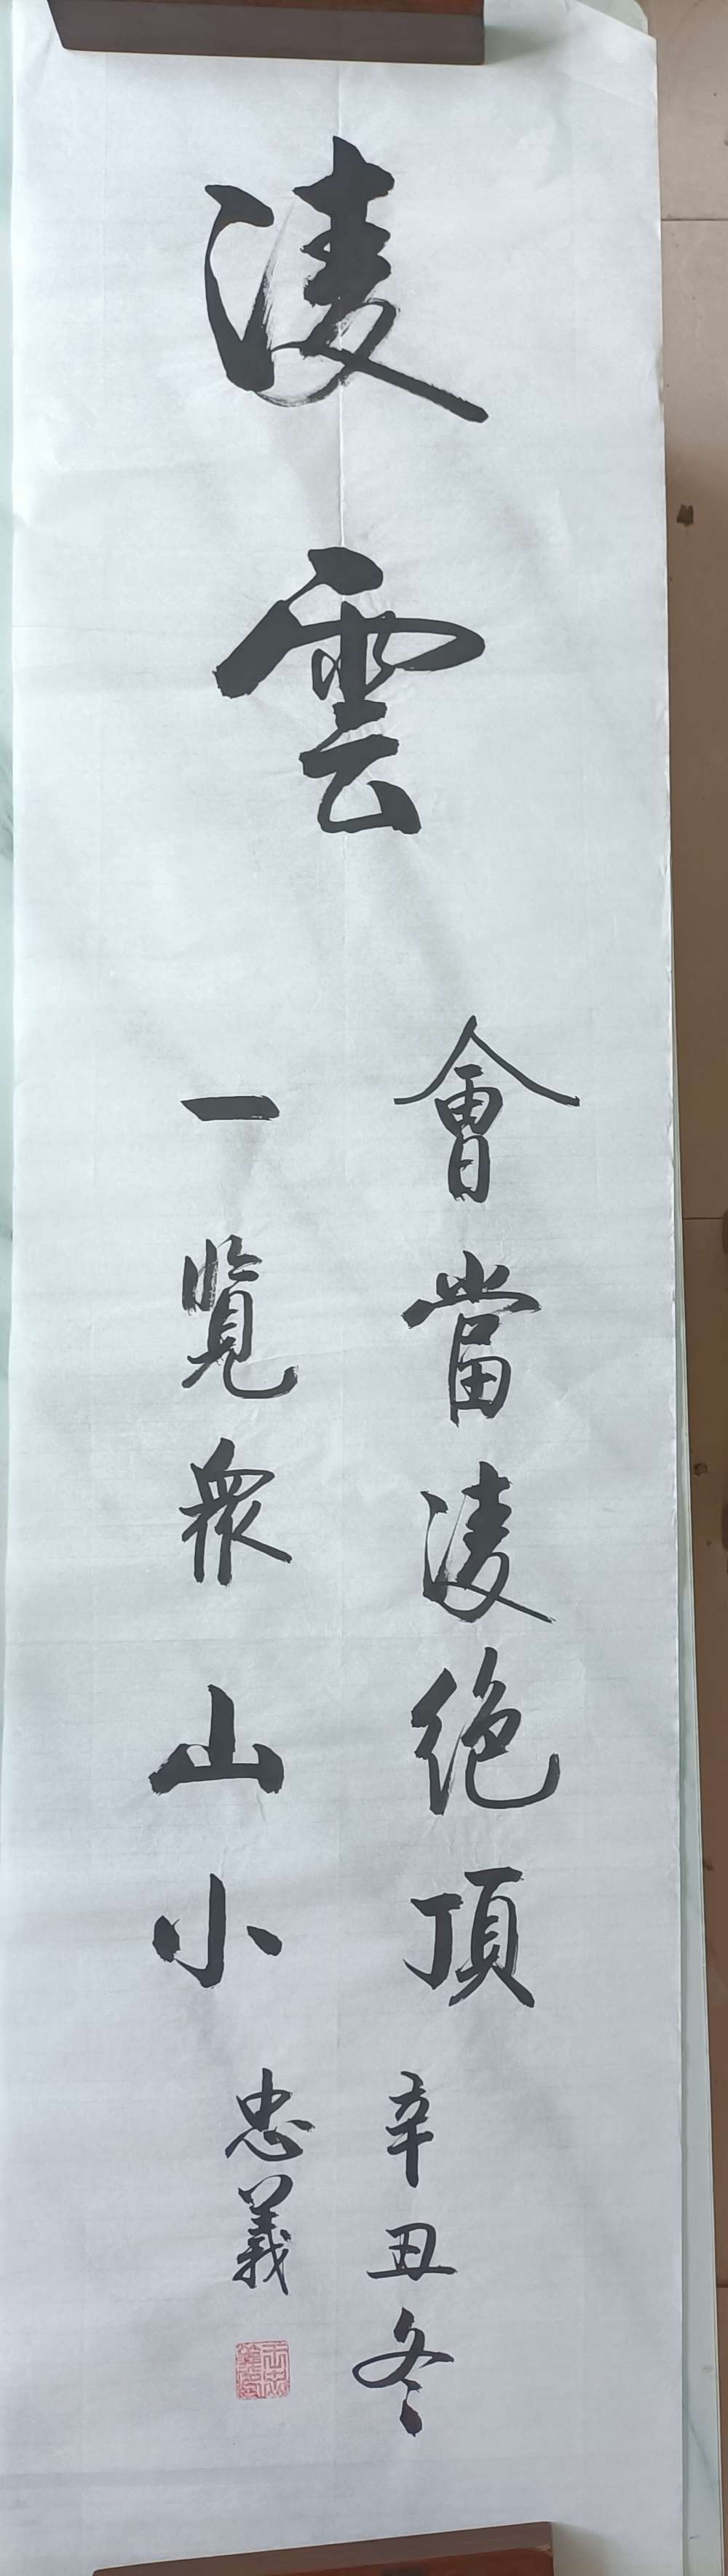 淩雲
會當淩絕頂
一覽衆山小
辛丑冬
忠義